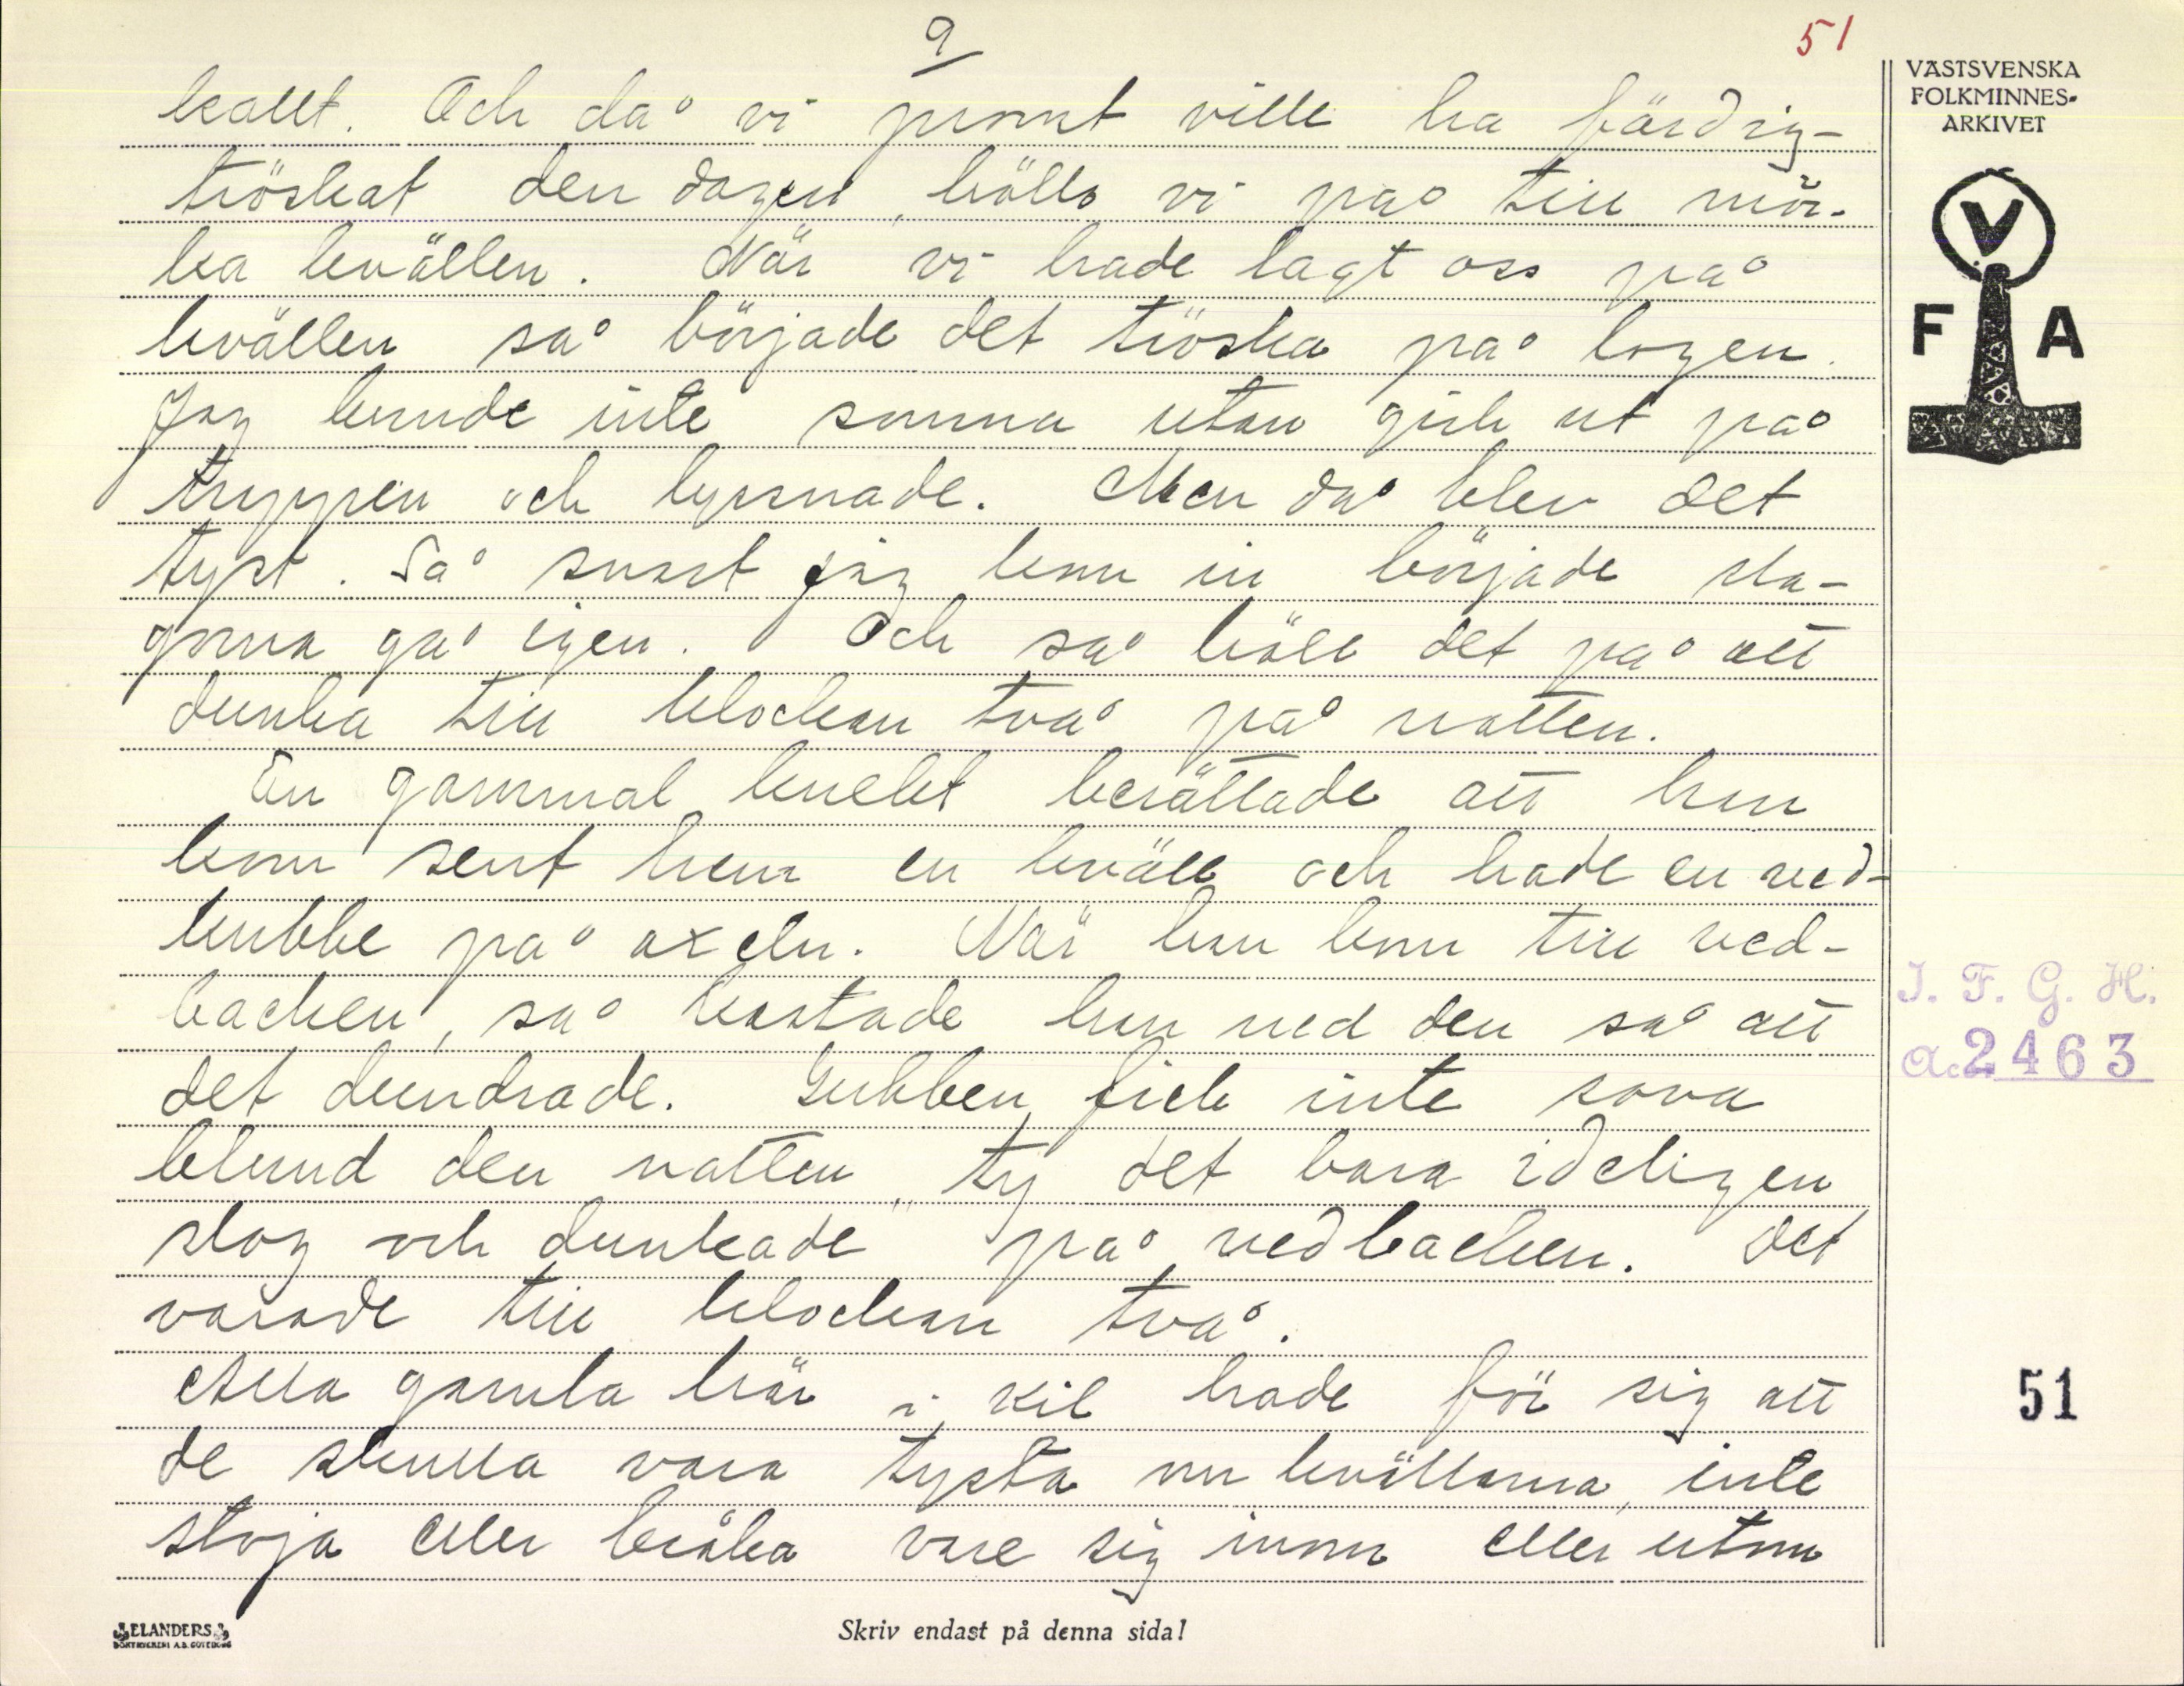 9
51
VÄSTSVENSKA
FOLKMINNES-
ARKIVET
V
F A
kallt. Och då vi promt ville ha färdig-
tröskat den dagen, höllo vi på till mör-
ka kvällen. När vi hade lagt oss på
kvällen så började det tröska på logen.
Jag kunde inte somna utan gick ut på
trappen och lyssnade. Men då blev det
tyst. Så snart jag kom in började sla-
gorna gå igen. Och så höll det på att
dunka till klockan två på natten.
En gammal knekt berättade att han
kom sent hem en kväll och hade en ved-
kubbe på axeln. När han kom till ved-
backen, så kastade han ned den så att
det dundrade. Gubben fick inte sova
blund den natten, ty det bara ideligen
slog och dunkade på vedbacken. Det
varade till klockan två.
Alla gamla här i Kil hade för sig att
de skulla vara tysta om kvällarna, inte
stoja eller bråka vare sig inom eller utom
I. F. G. H.
Acc. 2463
51
ELANDERS
BOKTRYCKERI A.B. GÖTEBORG
Skriv endast på denna sida!